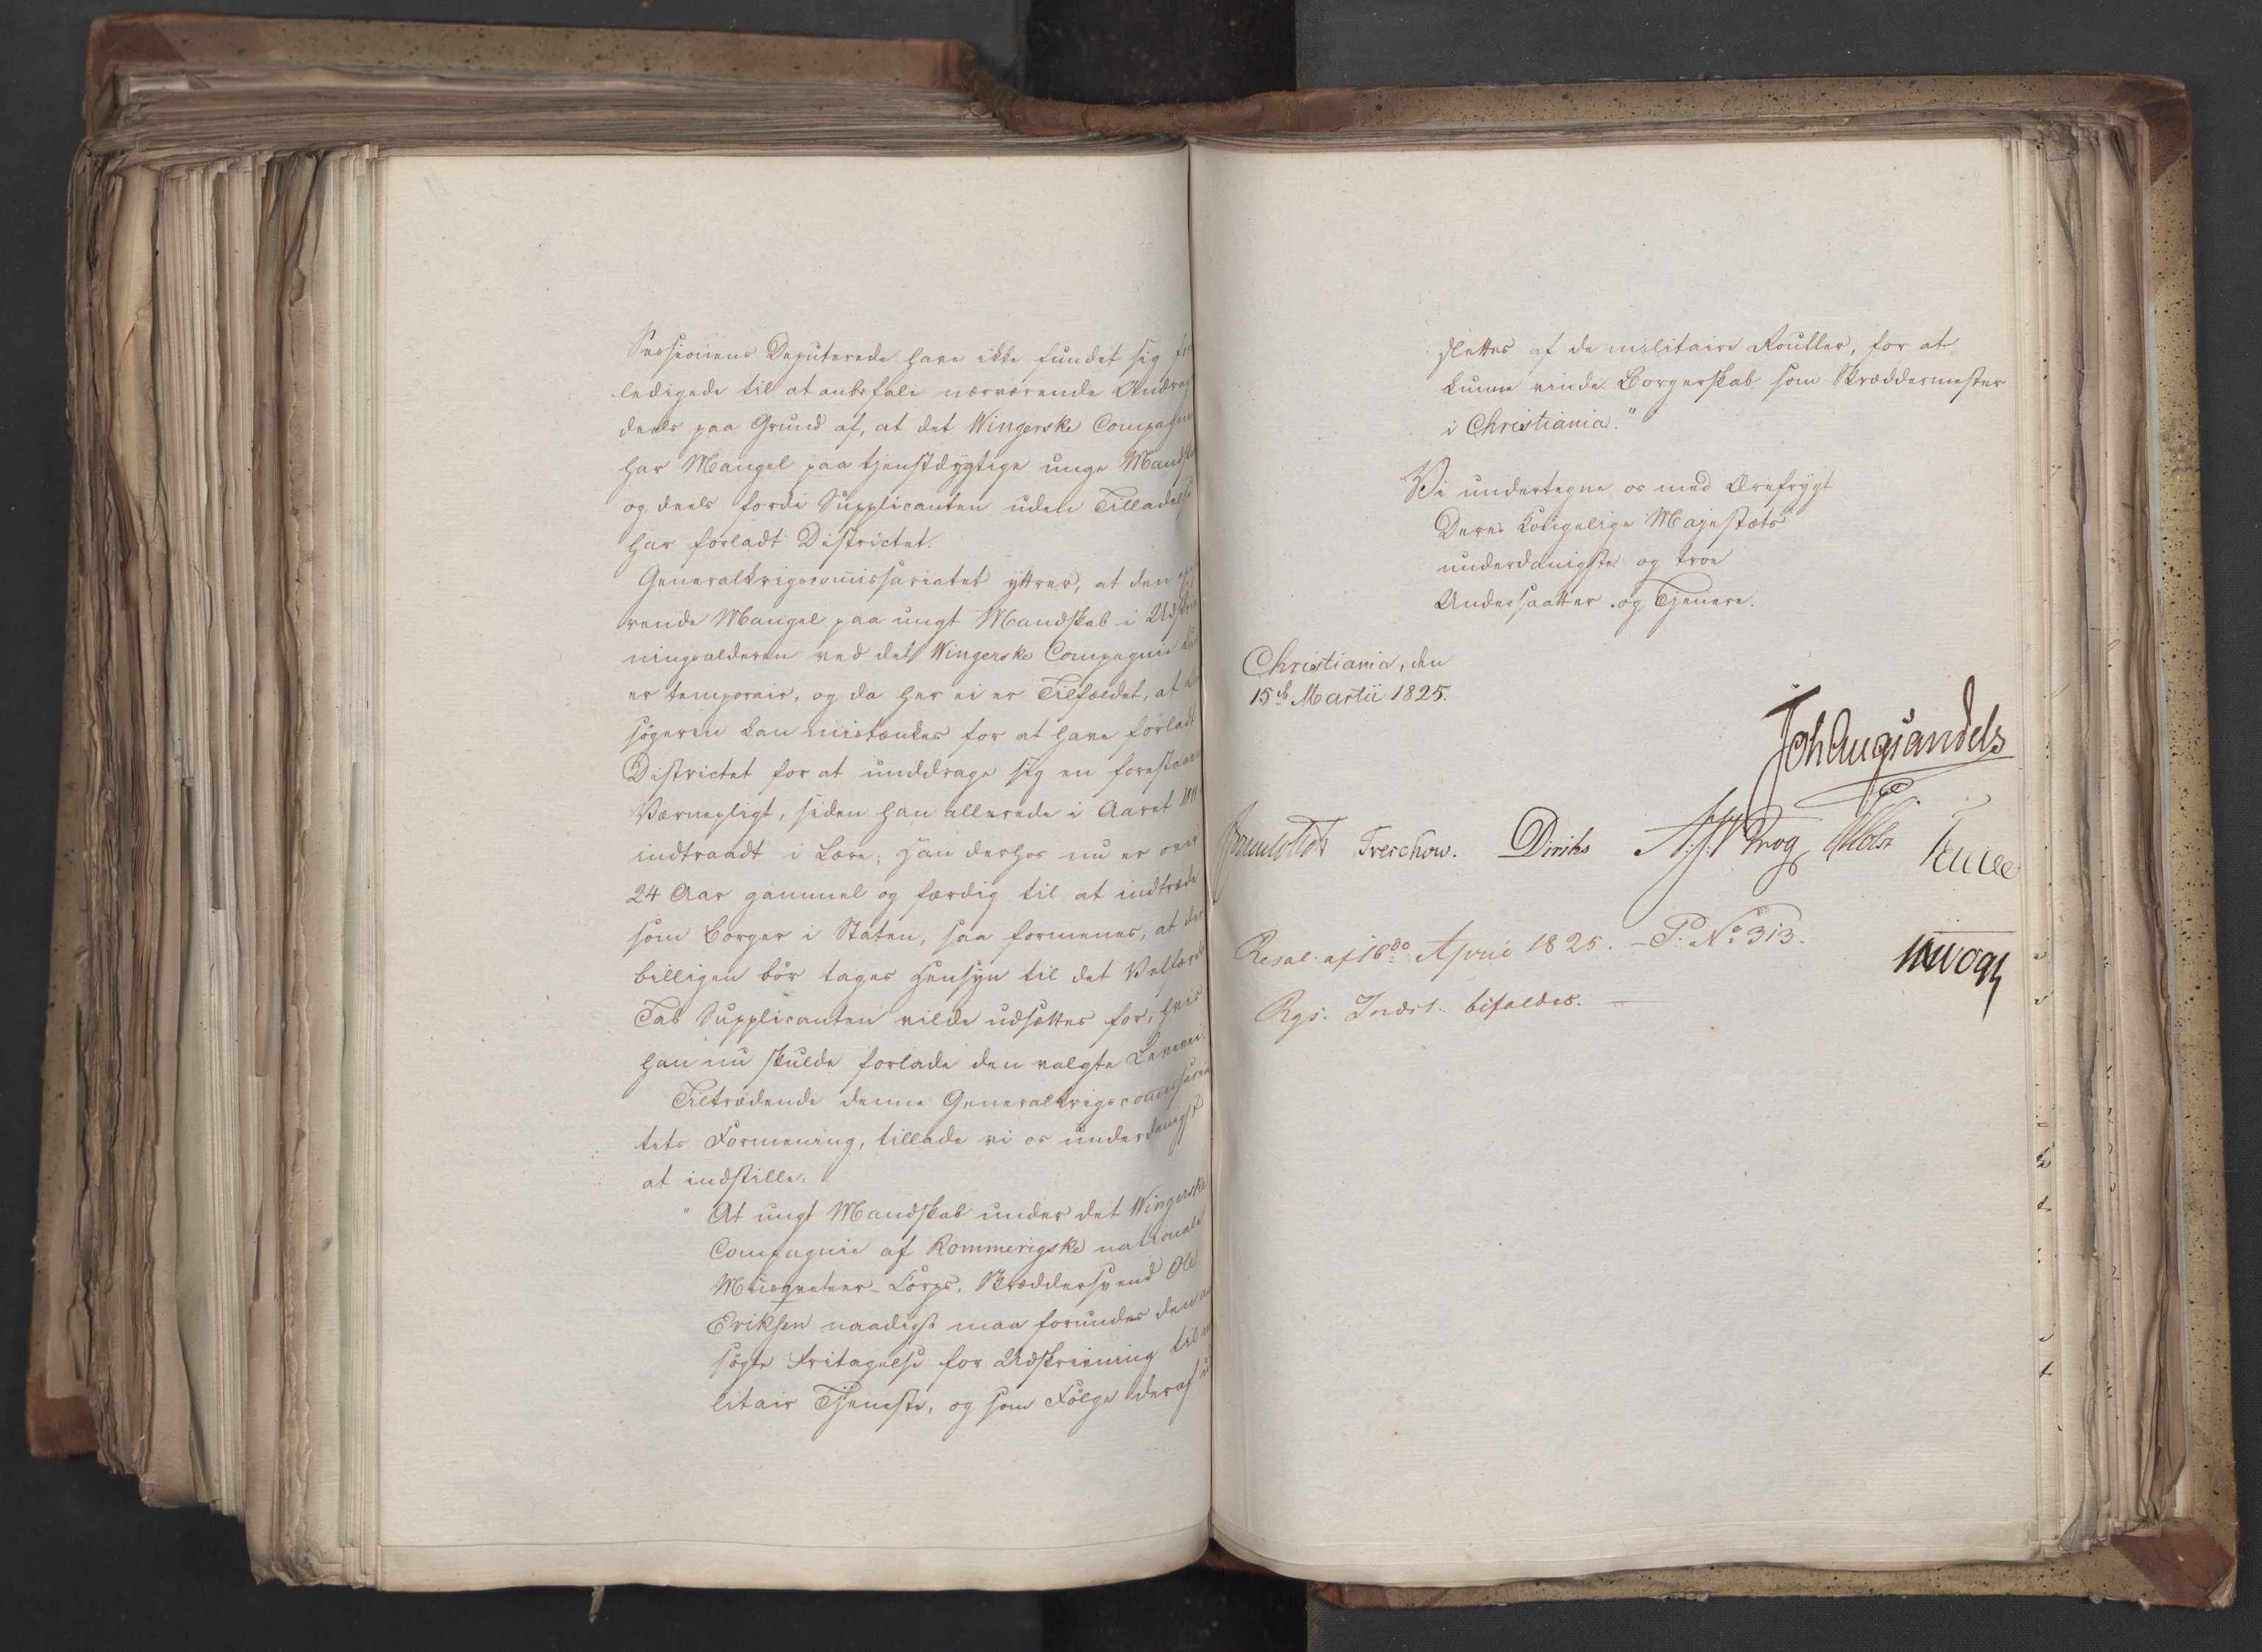 Sessionens Deputerede have ikke fundet sig
ledigede til at anbefale nærværende Andrag
deels paa Grund af, at det Wingerske Compagnie
har Mangel paa tjenstdygtige unge Mandsk
og deels fordi Supplicanten uden Tilladelse
har forladt Districtet.
Generalkrigscommissariatet yttrer, at den
rende Mangel paa ungt Mandskab i Udskriv
ningsalderen ved det Wingerske Compagnie
er temporair, og da her ei er Tilfældet, at
søgeren kan mistænkes for at have forladt
Districtet for at unddrage sig en forestaaen
Værnepligt, siden han allerede i Aaret
indtraadt i Lære; han derhos nu er over
24 Aar gammel og færdig til at indtræde
som Borger i Staten, saa formenes, at der
billigen bör tages Hensyn til det Velfærds
Tab Supplicanten vilde udsættes for, hvis
han nu skulde forlade den valgte Levevei.
Tiltrædende denne Generalkrigscommissaria
tets Formening, tillade vi os underdanigst
at indstille:
" At ungt Mandskab under det Wingerske
Compagnie af Rommerigske nationale
Musqueteer-Corps, Skræddersvend Ole
Eriksen naadigst maa forundes den
søgte Fritagelse for Udskrivning til
litair Tjeneste, og som Følge deraf
slettes af de militaire Rouller, for at
kunne vinde Borgerskab som Skræddermester
i Christiania."
Vi undertegne os med Ærefrygt
Deres Kongelige Majestæts
underdanigste og troe
Undersaatter og Tjenere.
Christiania, den
15de Martii 1825.
Joh Aug Sandels
Treschow. Diriks Krog Holst
JHVogt
Resol. af 16de April 1825. – P. No 313.
Rgs. Indst. bifaldes. —